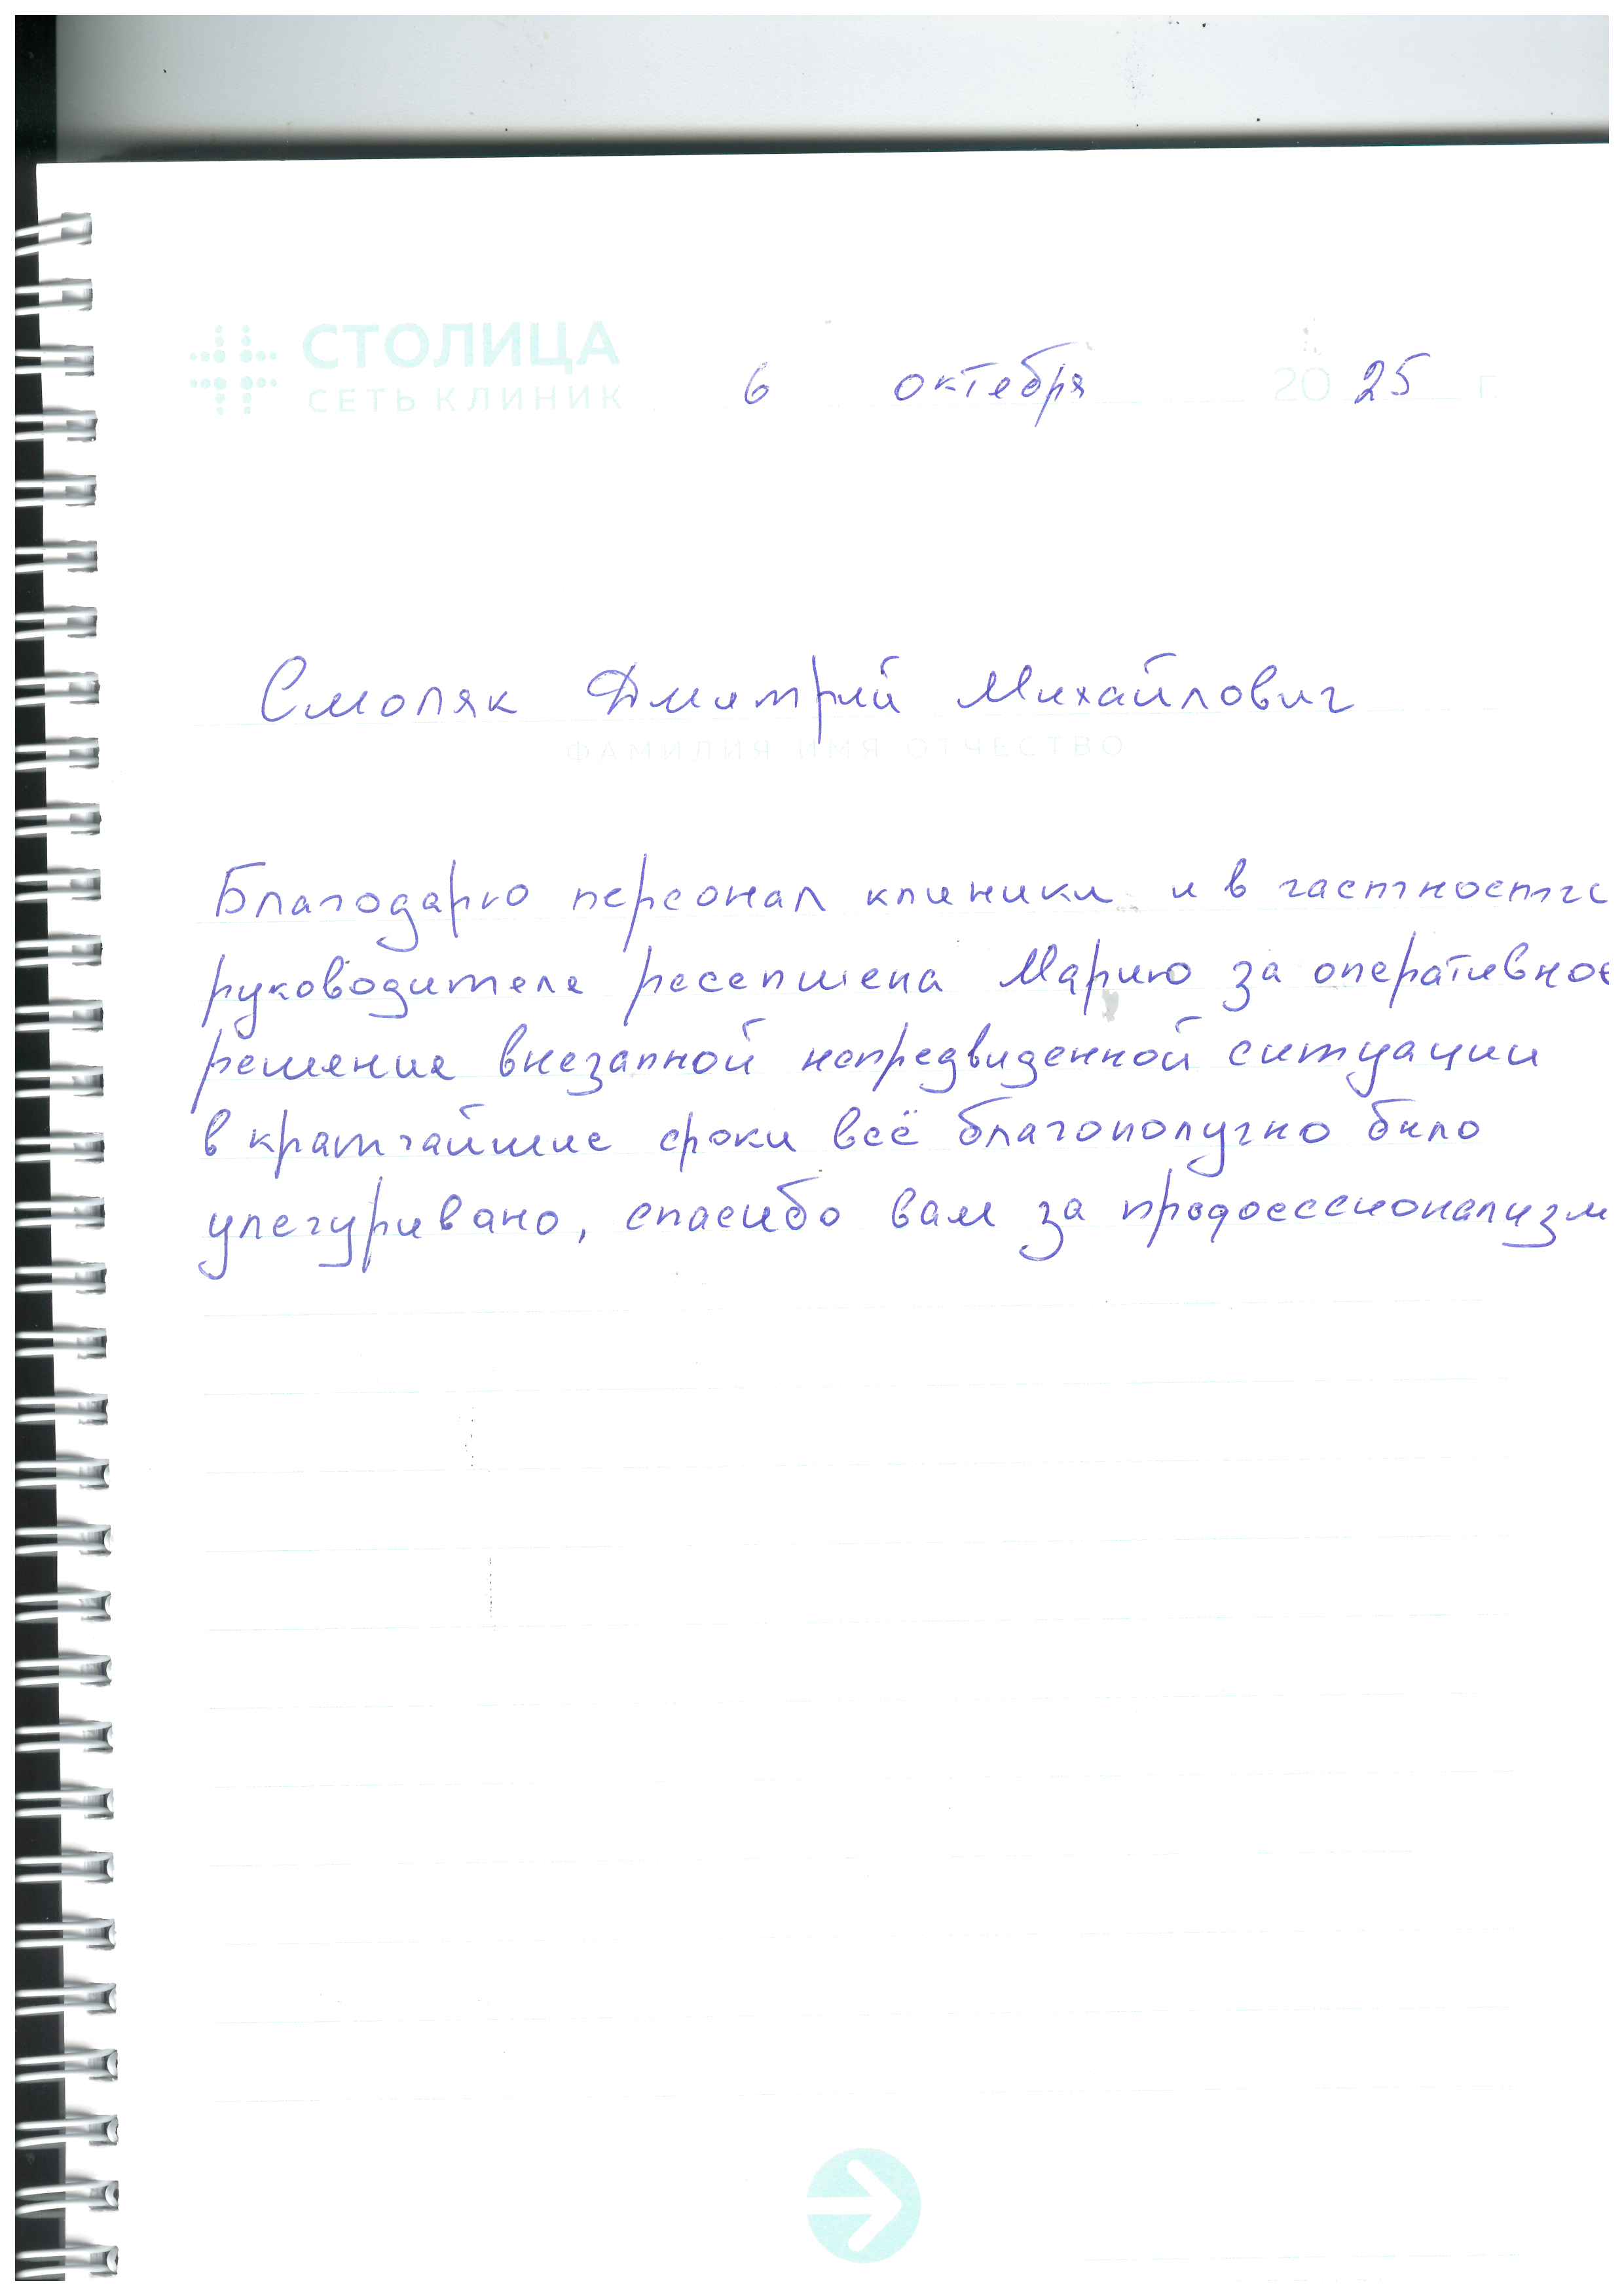 СТОЛИЦА
СЕТЬ КЛИНИК
6 октября 2025 г.
Смоляк Дмитрий Михайлович
ФАМИЛИЯ ИМЯ ОТЧЕСТВО
Благодарю персонал клиники и в частности
руководителя ресепшена Марию за оперативное
решение внезапной непредвиденной ситуации
в кратчайшие сроки всё благополучно было
улегуривано, спасибо вам за профессионализм